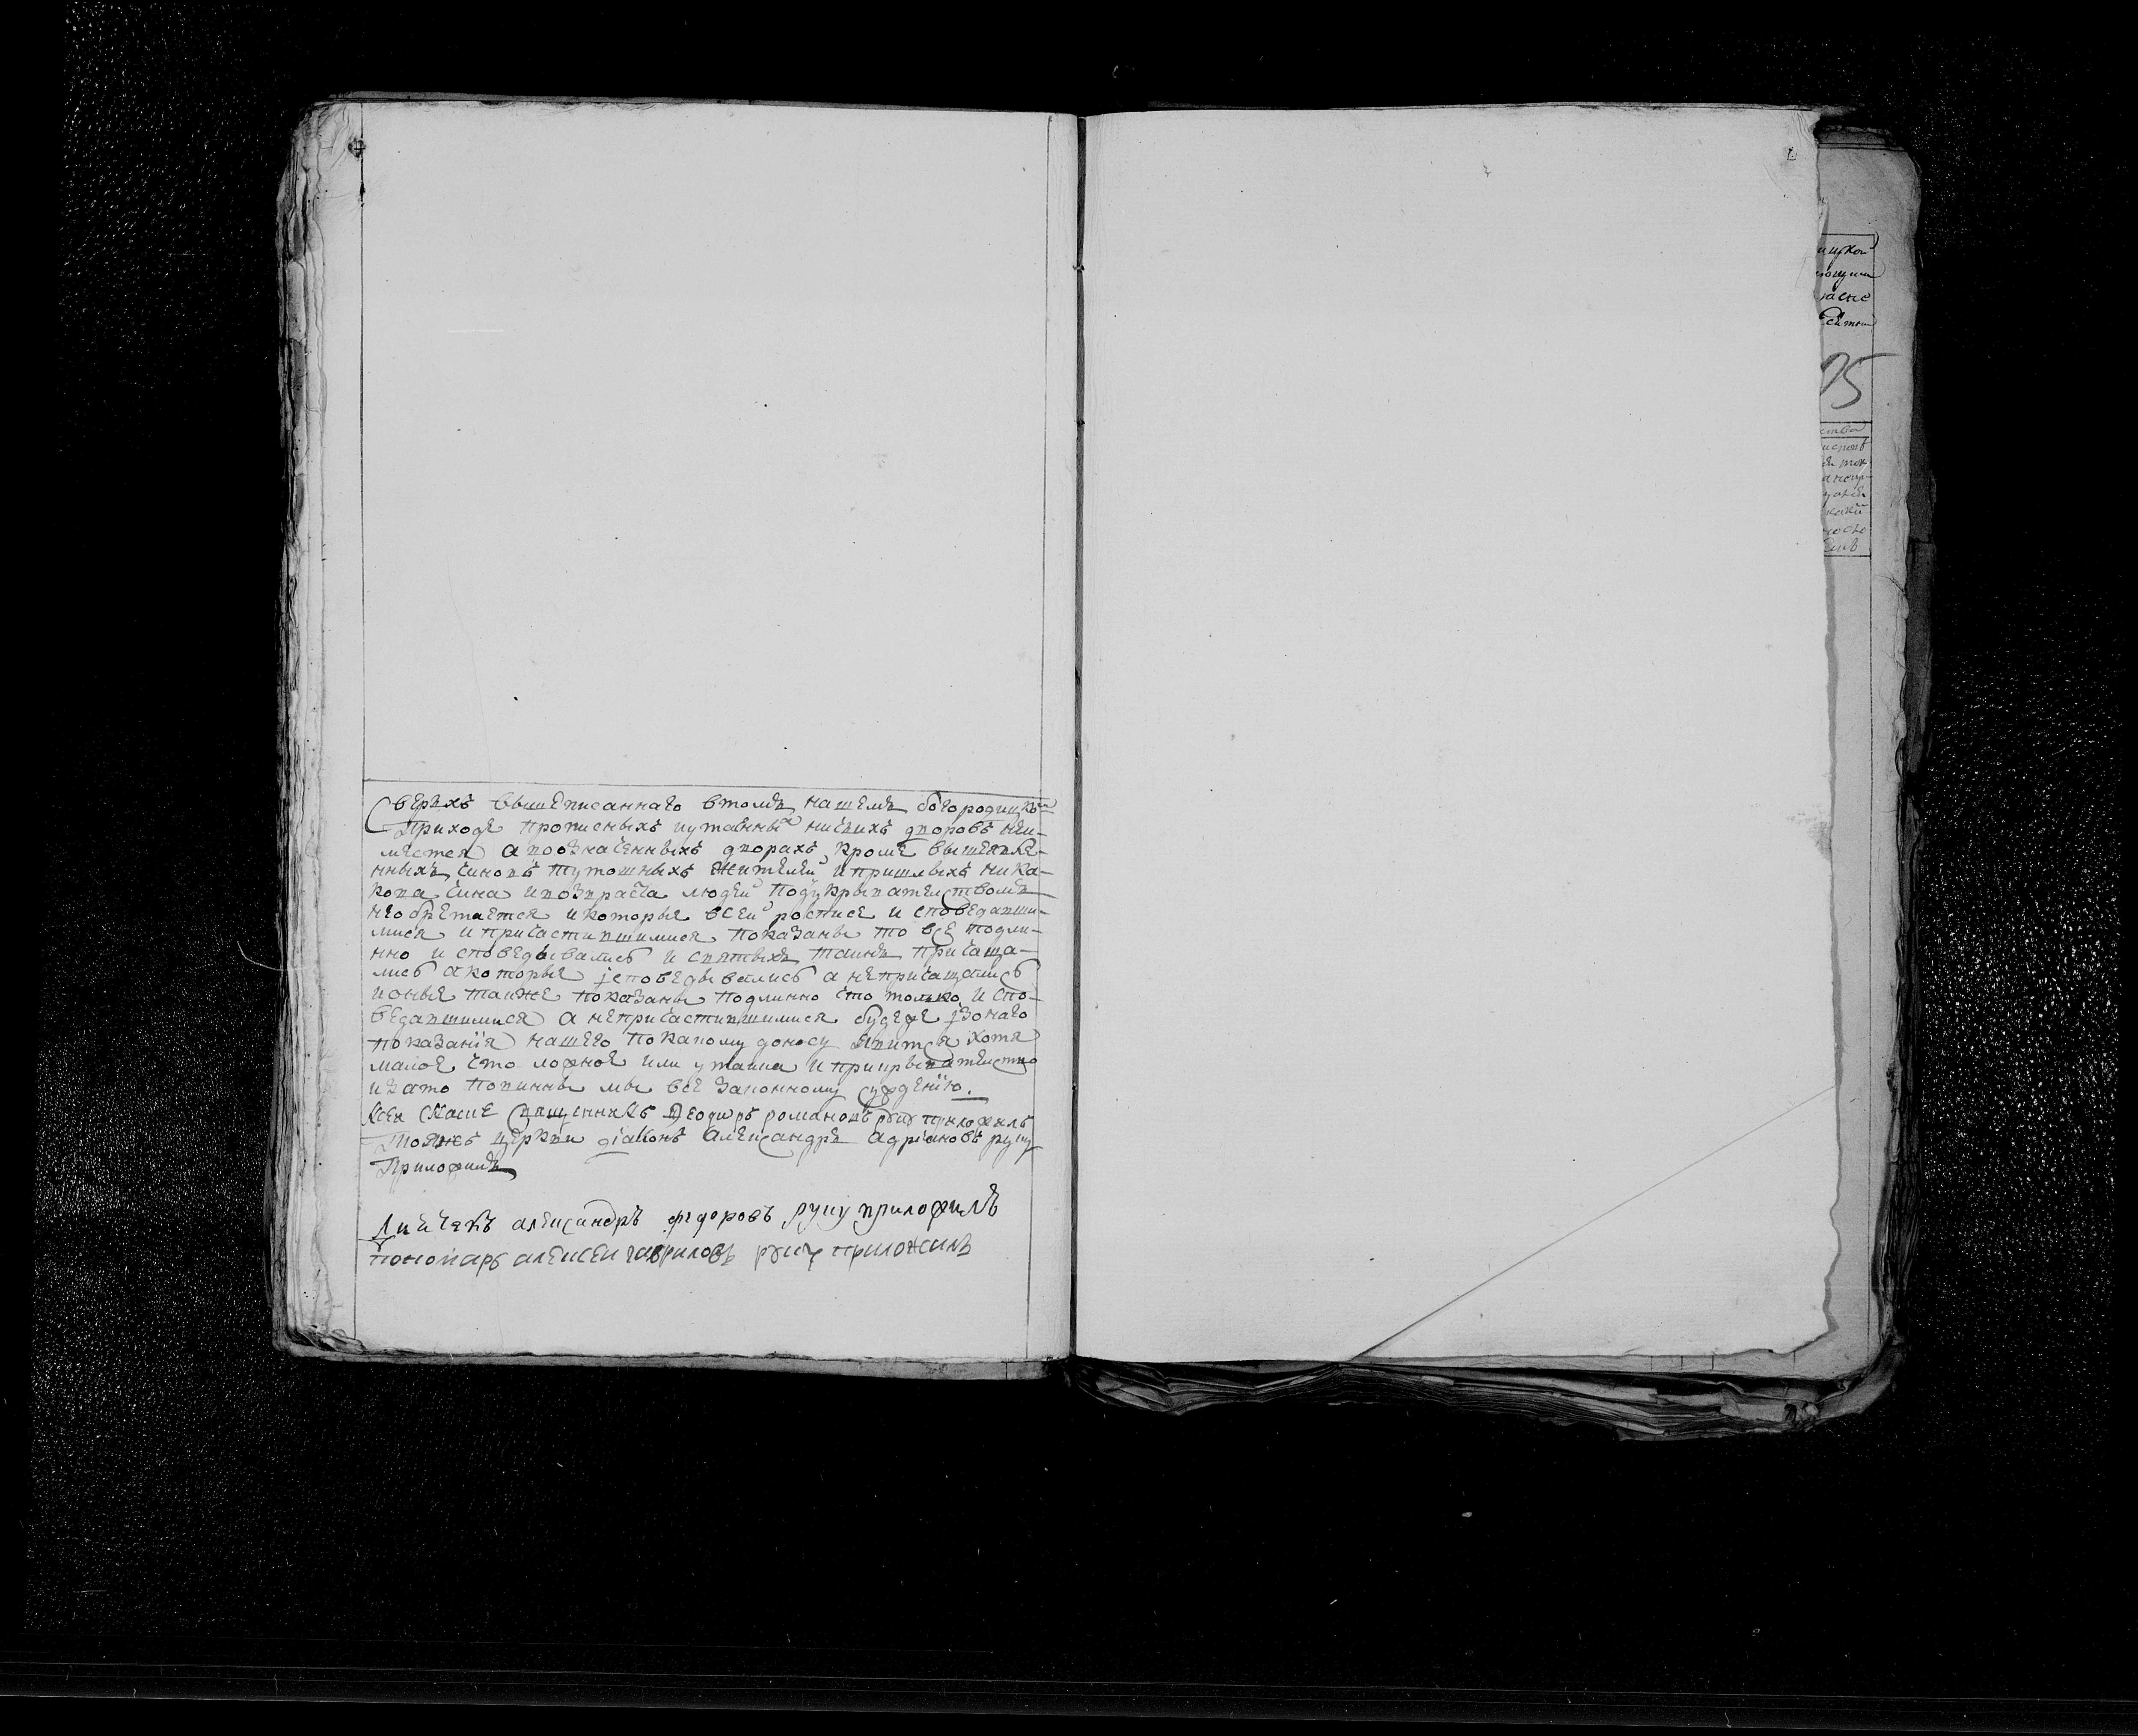 Сверхъ вышеписаннаго втомъ нашемъ богородицком
приходе прописныхъ иутаенных ничьихъ дворовъ неи-
меется авоозначенныхъ дворахъ кроме вышеявле-
нныхъ чиновъ тутошныхъ жителей ипришлыхъ ника-
кова чина ивозраста людей подукрывателствомъ
необретается икоторые всей росписе исповедавши-
мися ипричастившимися показаны то все подли-
нно исповедывались и святыхъ таинъ прича­ща-
лись акоторые јсповедывались а непричащались
ионые также показаны подлинно что только испо-
ведавшимися а непричастившимися будеже јзонаго
показанїя нашего покакому доносу явится хотя
малое что ложное или утайка иприкрывателство
изато повинны мы все законному суждению.
Ксей скаске священникъ Ѳеодоръ романовъ руку приложилъ
Тояжъ церкви дїаконъ Александръ Адрїановъ руку
Приложилъ
Дьячекъ александръ федоровъ руку приложилъ
пономарь алексеи гавриловъ руку приложилъ